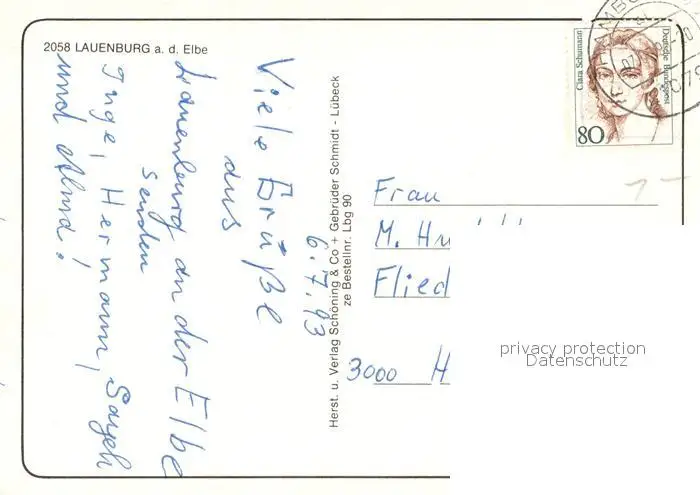 2058 LAUENBURG a. d. Elbe
6.7.93
Viele Grüße
aus
Lauenburg an der Elbe
senden
Inge, Hermann,
und Alma!
Herst. u. Verlag Schöning & Co + Gebrüder Schmidt - Lübeck
ze Bestellnr. Lbg 90
Clara Schumann
Deutsche Bundespost
80
Frau
M.
Flied
3000 H
privacy protection
Datenschutz